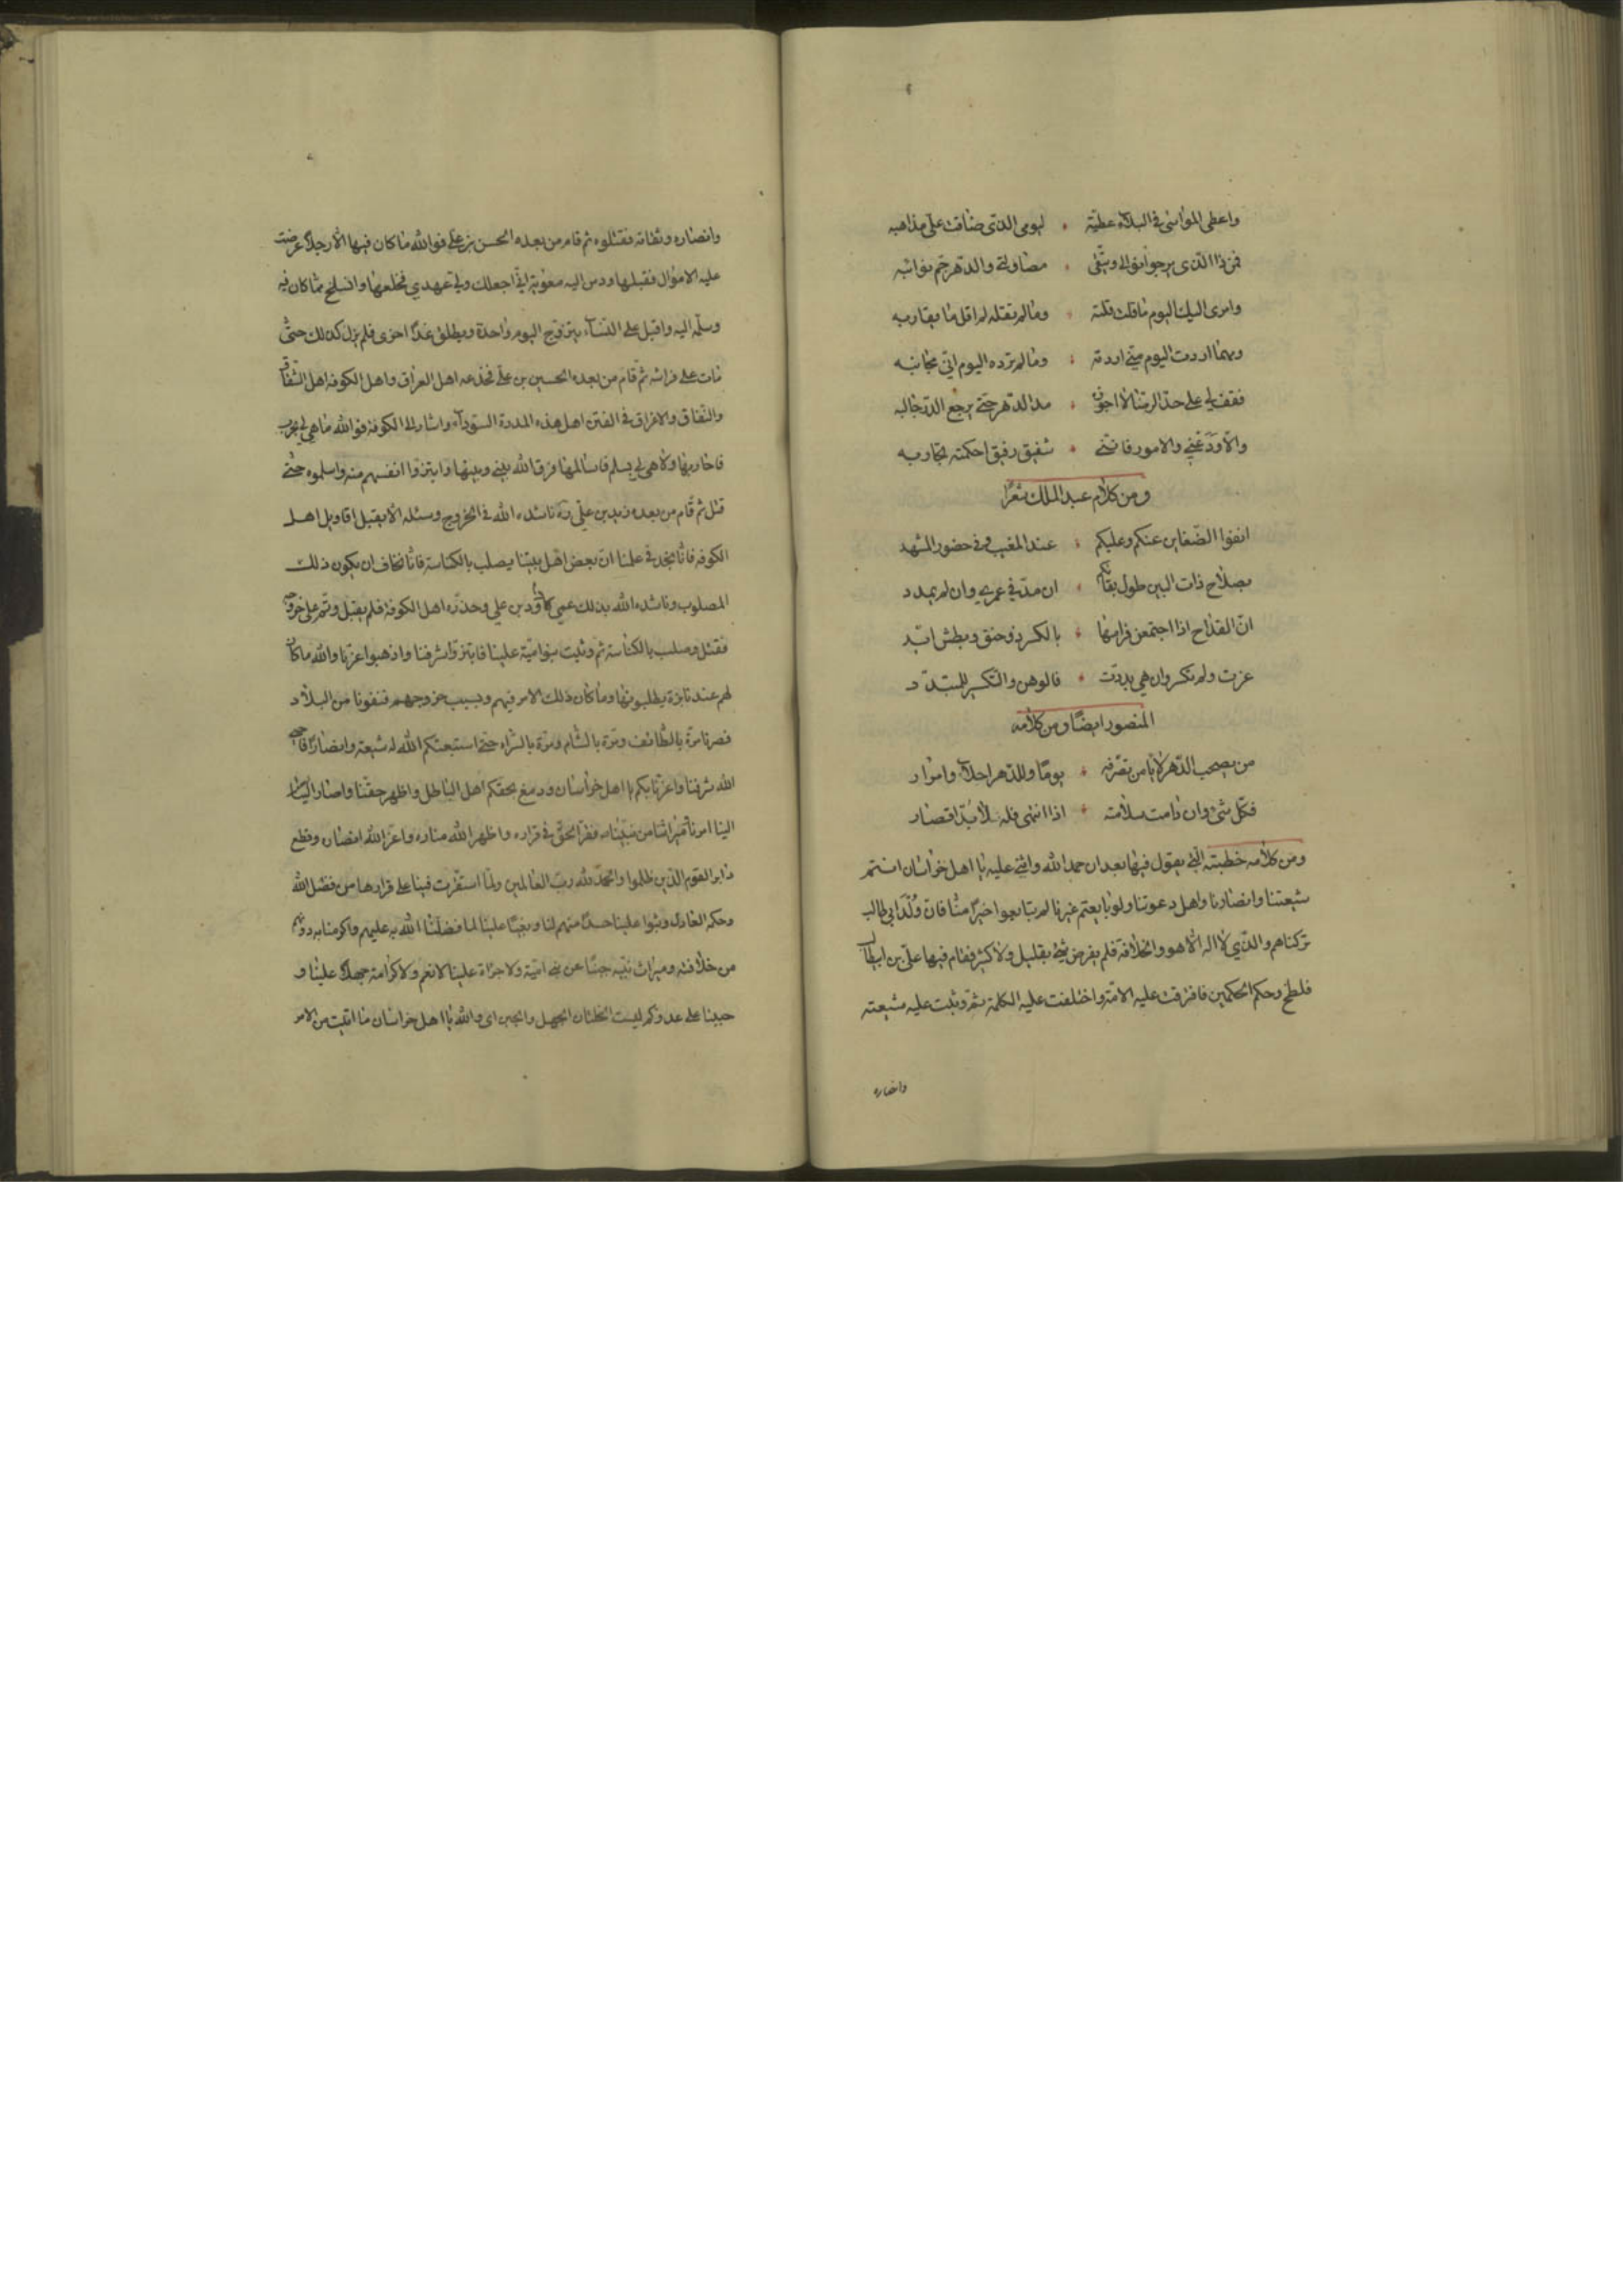 واعطى المواسى فى البلاء عطية ليومى الذى ضاقت على مذاهبه
فمن ذا الذى يرجو نوالى ويتقى مصاولتى والدهر جم نوائبه
وامرى اليك اليوم ما قلت قلته وما لم تقله لم اقل ما يقاربه
ومهما اردت اليوم منى اردته وما لم ترده اليوم انى مجانبه
فقف لى على حد الرضا لا اجوزه مدا الدهر حتى يرجع الدر حالبه
والا ودعنى والامور فاننى شفيق رفيق احكمته تجاربه
ومن كلام عبد الملك شعرا
انفوا الضغاين عنكم وعليكم عند المغيب وفى حضور المشهد
بصلاح ذات البين طول بقائكم ان مد فى عمرى وان لم يمدد
ان القداح اذا اجتمعن فرامها بالكسر ذو حنق وبطش ايد
عزت ولم تكسر وان هى بددت فالوهن والتكسير للمتبدد
المنصور ايضا ومن كلامه
من يصحب الدهر لا يامن تصرفه يوما وللدهر احلاء وامرار
فكل شئ وان دامت سلامته اذا انتهى فله لا بد اقصار
ومن كلامه خطبته التى يقول فيها بعد ان حمد الله واثنى عليه يا اهل خراسان انتم
شيعتنا وانصارنا واهل دعوتنا ولو بايعتم غيرنا لم تبايعوا خيرا منا فان ولد ابى طالب
تركناهم والذى لا اله الا هو والخلافة فلم نعرض بقليل ولا كثير فقام فيها على بن ابيطالب
فلطخ وحكم الحكمين فافترقت عليه الامة واختلفت عليه الكلمة ثم وثبت عليه شيعته
وانصاره
وانصاره وثقاته فقتلوه ثم قام من بعده الحسن بن على فوالله ما كان فيها الا رجلا عرضت
عليه الاموال فقبلها ودس اليه معوية انى اجعلك ولى عهدى فخلعها وانسلخ مما كان فيه
وسلمه اليه واقبل على النساء يتزوج اليوم واحدة ويطلق غدا اخرى فلم يزل كذلك حتى
مات على فراشه ثم قام من بعده الحسين بن على فخدعه اهل العراق واهل الكوفة اهل الشقاق
والنفاق والاغراق فى الفتن اهل هذه المدرة السوداء واشار الى الكوفة فوالله ما هى لى بحرب
فاحاربها ولا هى لى بسلم فاسالمها فرق الله بينى وبينها وابتزوا انفسهم منه واسلموه حتى
قتل ثم قام من بعده زيد بن على ناشده الله فى الخروج وسئله الا يقبل اقاويل اهل
الكوفة فانا نجد فى علمنا ان بعض اهل بيتنا يصلب بالكناسة فانا نخاف ان يكون ذلك
المصلوب وناشده الله بذلك عمى داود بن على وحذره اهل الكوفة فلم يقبل وتم على خروجه
فقتل وصلب بالكناسة ثم وثبت بنو امية علينا فابتزوا شرفنا واذهبوا عزنا والله ما كان
لهم عندنا ترة يطلبونها وما كان ذلك الامر فيهم وبسبب خروجهم فنفونا من البلاد
فصرنا مرة بالطائف ومرة بالشام ومرة بالشراه حتى استبعثكم الله له شيعة وانصارا فاحيى
الله شرفنا واعزنا بكم يا اهل خراسان ودمغ بحقكم اهل الباطل واظهر حقنا واصار الينا
الينا امرنا ميراثنا من نبينا فقر الحق فى قراره واظهر الله مناره واعز الله انصاره وقطع
دابر القوم الذين ظلموا والحمد لله رب العالمين ولما استقرت فينا على قرارها من فضل الله
وحكم العادل وثبوا علينا حسدا منهم لنا وبغيا علينا لما فضلنا الله به عليهم واكرمنا به دونهم
من خلافته وميراث نبيه جبنا عن بنى امية ولا جراة علينا لا نعم ولا كرامة جهلا علينا و
جبنا على عدوكم ليست الخلتان الجهل والجبن اى والله يا اهل خراسان ما اتيت من الامر